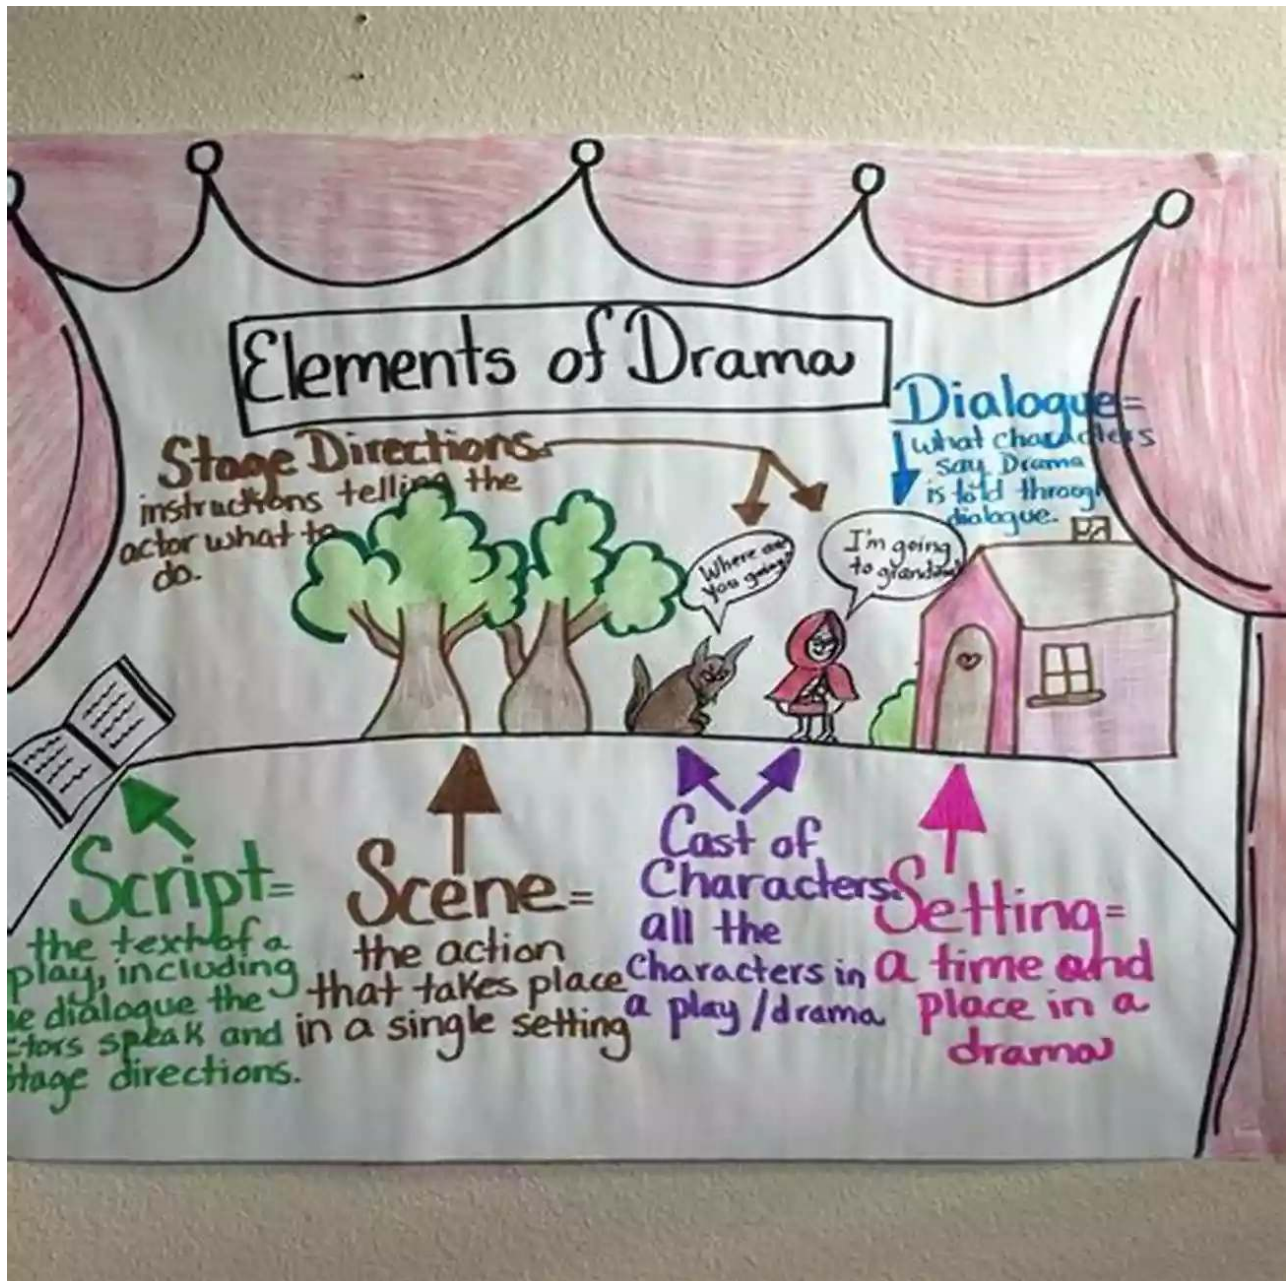 Elements of Drama
Stage Directions-
instructions telling the
actor what to
do.
Dialogue=
what characters
say Drama
is told through
dialogue.
Where are
you going?
I'm going
to
Script=
the text of a
play, including
dialogue the
speak and
stage directions.
Scene=
the action
that takes place
in a single setting
Cast of
Characters:
all the
characters in
a play/drama
Setting=
a time and
place in a
drama